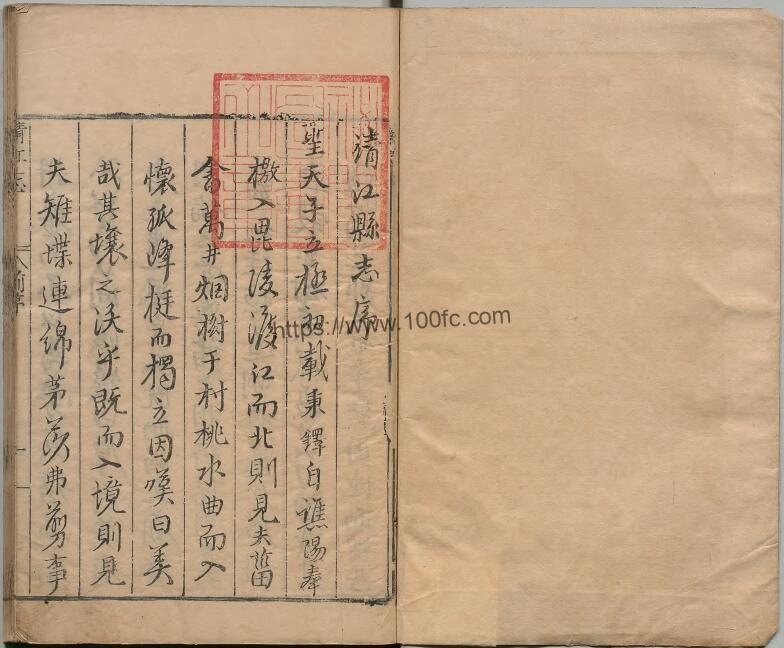 靖江縣志序
聖天子立極初載秉鐸自譙陽奉
檄入毘陵渡江而北則見夫菑
畬萬井烟樹千村桃水曲而入
懷孤峰挺而獨立因嘆曰美
哉其壤之沃乎既而入境則見
夫雉堞連綿茅茨弗剪事
靖江志 前序 一
https://www.100fc.com